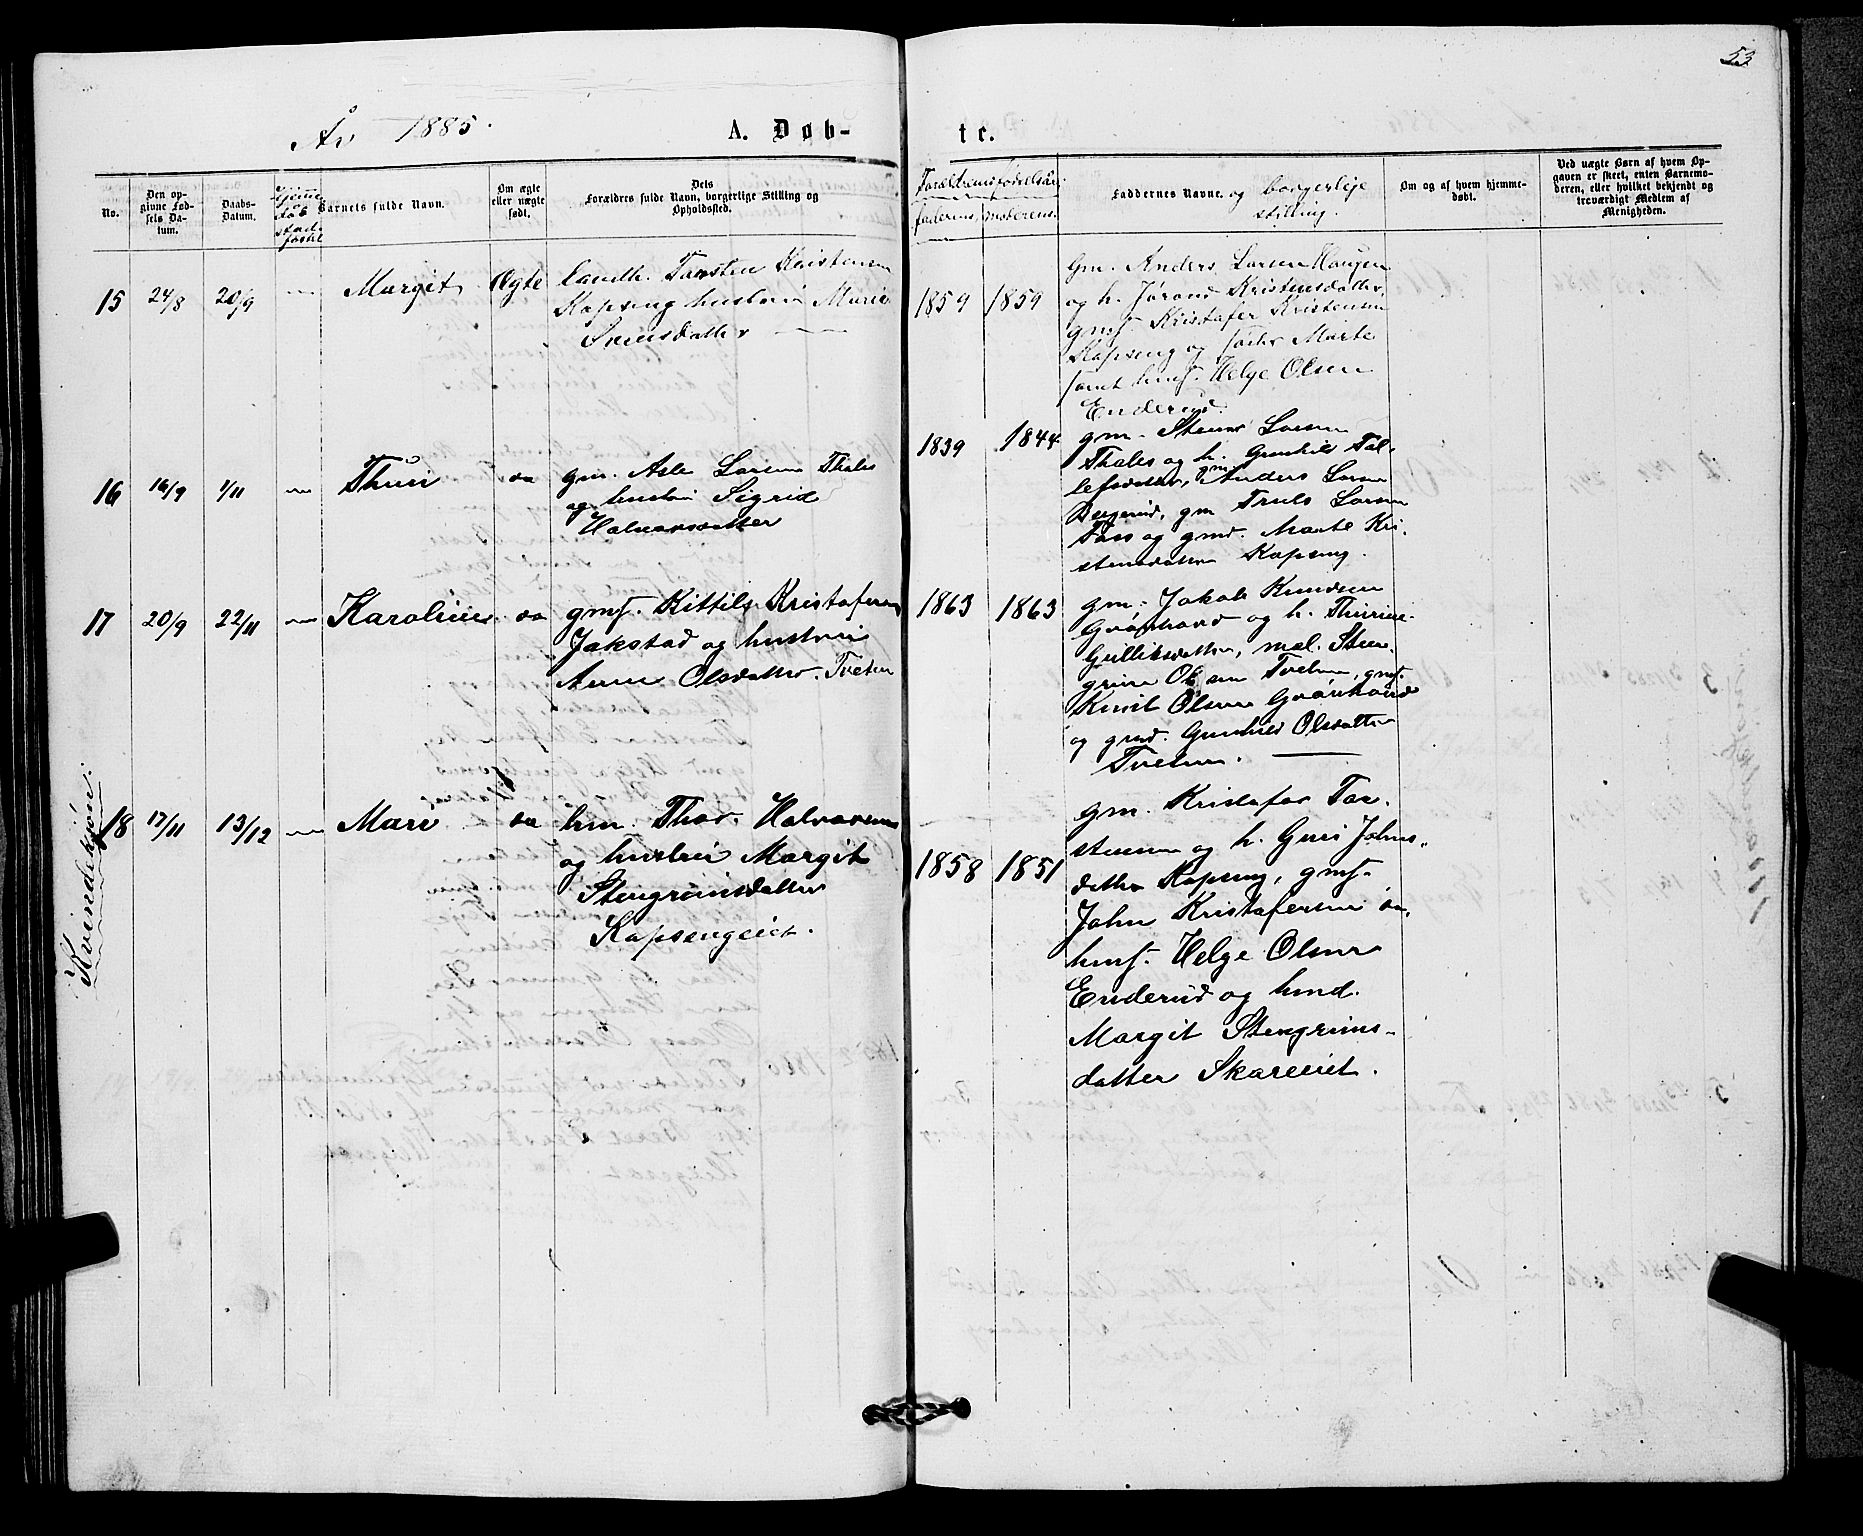 53
År 1885.
A. Døb-
te.
No.
Den op-
givne Fød-
sels Da-
tum.
Daabs-
Datum.
Hjemme
Barnets fulde Navn.
Om ægte
eller uægte
født.
Dets
Forældres fulde Navn, borgerlige Stilling og
Opholdssted.
Forældrenes fødselsår
faderens
moderens.
Faddernes Navne. og borgerlige
stilling.
Om og af hvem hjemme-
døbt.
Ved uægte Børn af hvem Op-
gaven er skeet, enten Barnemo-
deren, eller hvilket bekjendt og
troværdigt Medlem af
Menigheden.
Kvindekjøn.
15 24/8 20/9 — Margit Ægte
Landh. Torsten Kristensen
Kopseng hustru Marie
Svensdatter
1859 1859
gm. Anders Larsen Haugen
og h. Jørand Kristensdatter,
gmf. Kristafer Kristensen
Kopseng og Marte
samt hmf. Helge Olsen
Enderud.
16 16/9 1/11 — Thuri do
gm. Asle Larsen Thales
og hustru Sigrid
Halvorsdatter
1839 1844
gm. Stener Larsen
Thales og h. Gunhild Tol-
lefsdatter, gm Anders Larsen
Bergerud, gm Truls Larsen
Foss og gmd. Marte Kri-
stensdatter Kopseng.
17 20/9 22/11 — Karoline do
gmf. Kittil Kristafersen
Jakstad og hustru
Anne Olsdatter Tveten
1863 1863
gm. Jakob Knudsen
Grønhovd og h. Thurine
Gulliksdatter, mal. Sten-
grim Olsen Tveten, gmf.
Knut Olsen Grønhovd
og gmd. Gunhild Olsdatter
Tveten.
18 17/11 13/12 — Mari do
hm. Thor Halvorsen
og hustru Margit
Stengrimsdatter
Kopsengeiet.
1858 1851
gm. Kristafor Tor-
stensen og h. Guri Johns-
datter Kopseng, gmf.
John Kristafersen do,
hmf. Helge Olsen
Enderud og hmd.
Margit Stengrims-
datter Skareeiet.